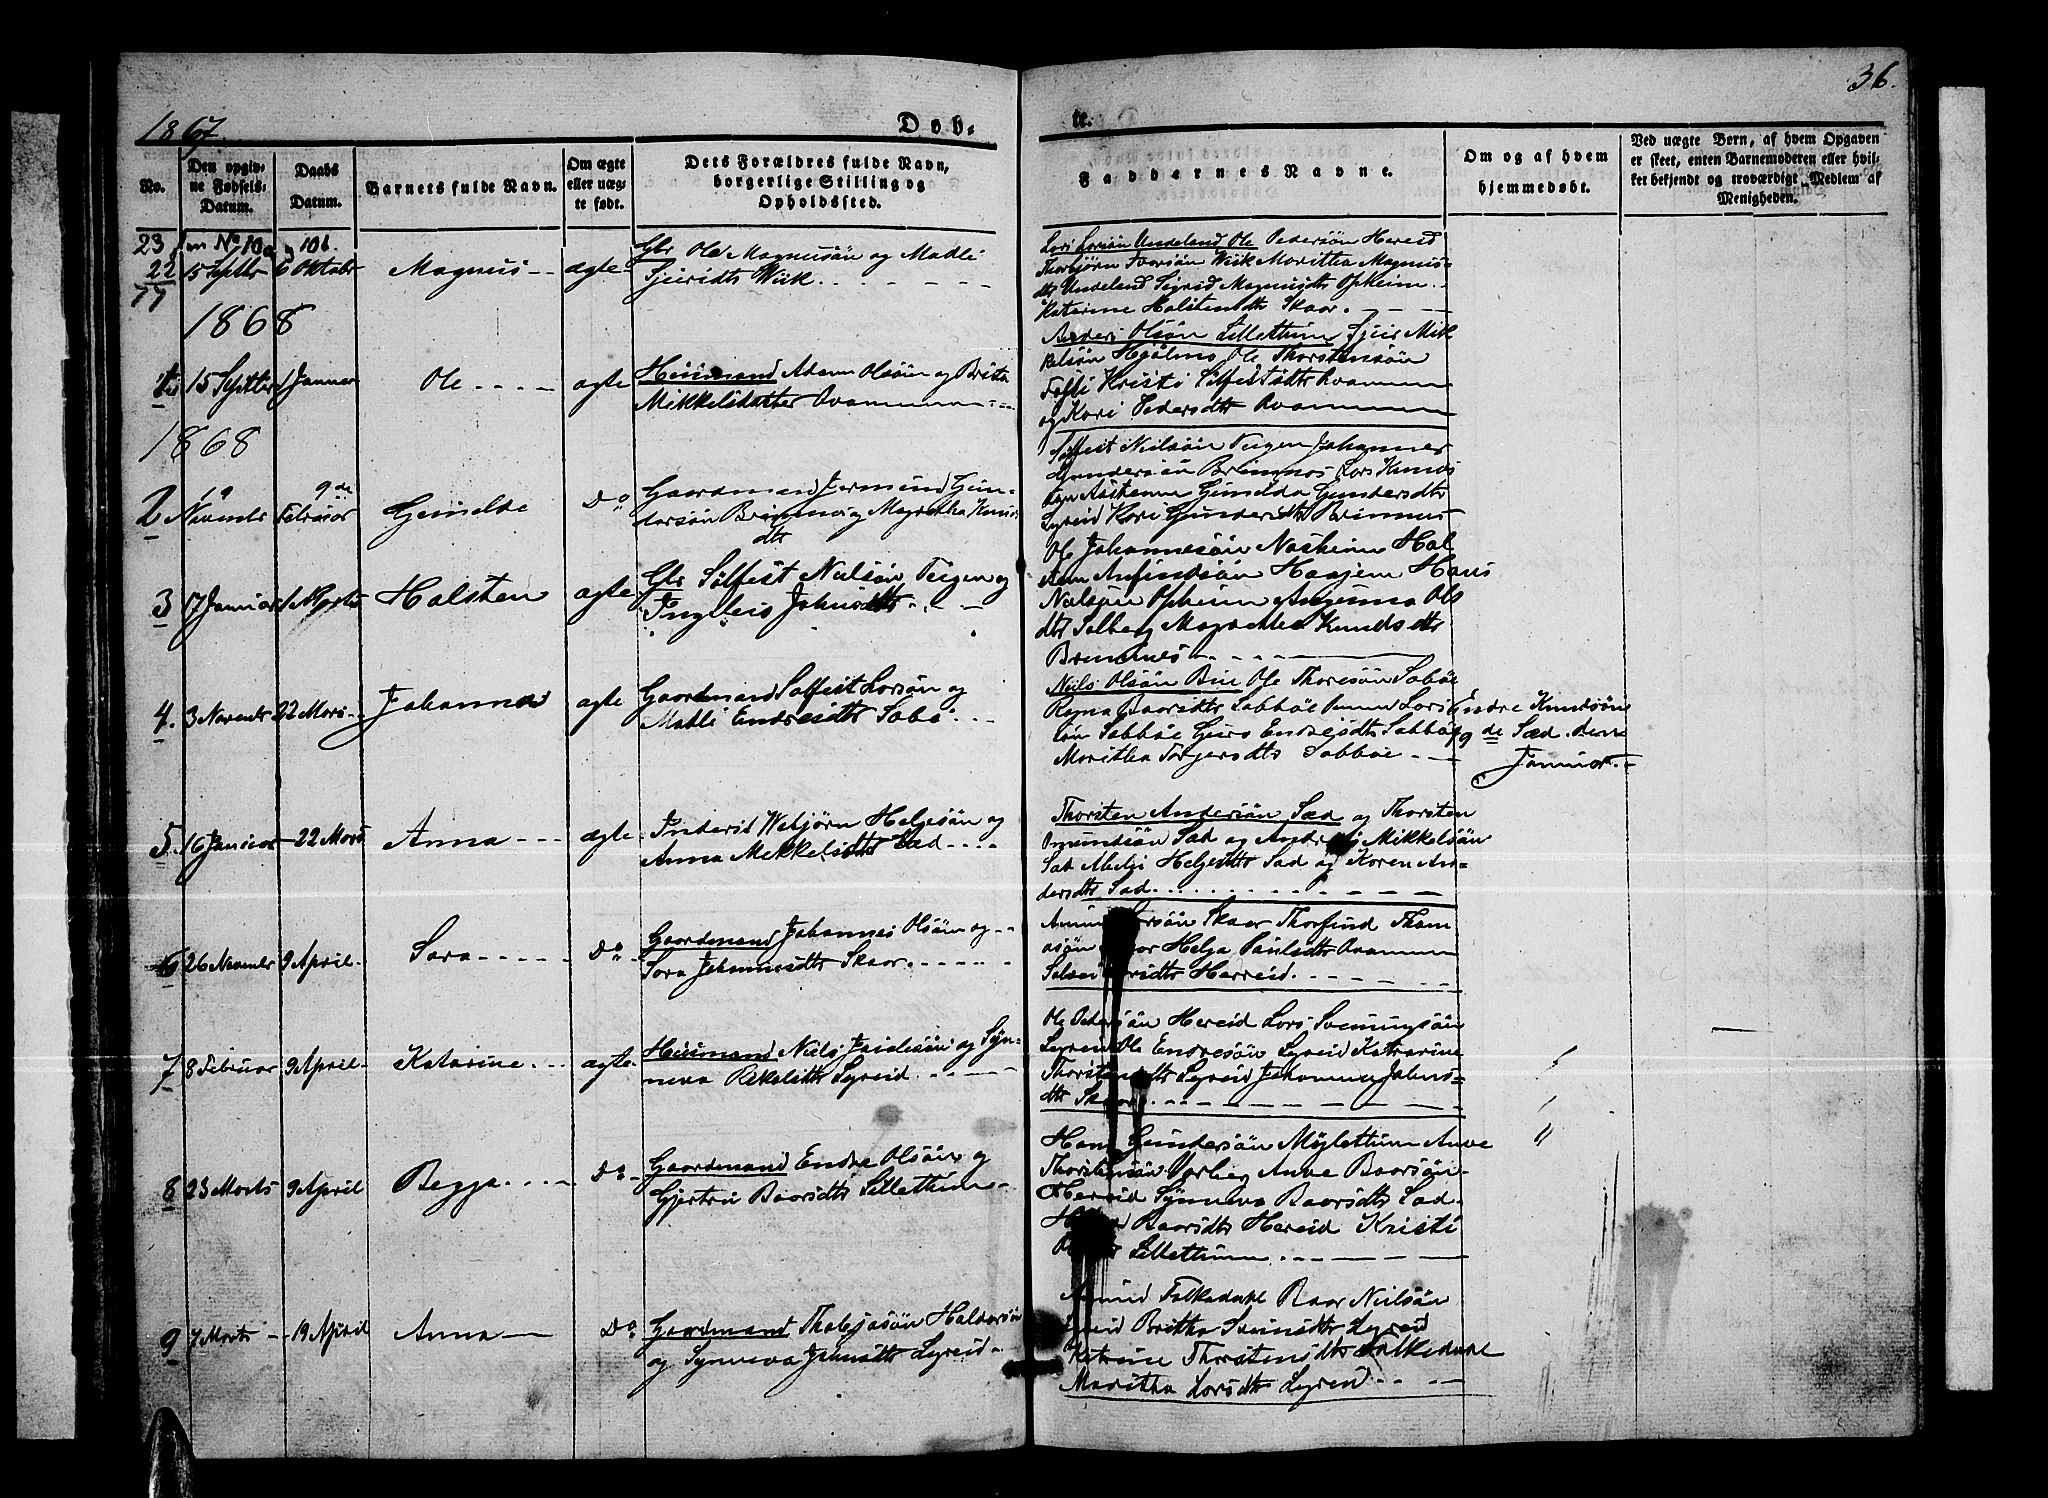 1867.
Døb-
te.
36.
No.
Den opgiv-
ne Fødsels-
Datum.
Daabs
Datum.
Barnets fulde Navn.
Om ægte
eller uæg-
te født.
Dets Forældres fulde Navn,
borgerlige Stilling og
Opholdssted.
Faddernes Navne.
Om og af hvem
hjemmedøbt.
Ved uægte Børn, af hvem Opgaven
er skeet, enten Barnemoderen eller hvil-
ket bekjendt og troværdigt Medlem af
Menigheden.
23 No 10a 10b
22 15 Septbr 6 Oktobr Magnus ægte
17
Ole Magnusøn og Madli
Sjuridts Wiik
Lars Larsøn Undeland Ole Pedersøn Hereid
Thorbjørn Ivarsøn Wiik Maritha Magnus-
dtr Undeland Sigrid Magnusdtr Opheim
Katarine Halstendtr Skaar
1868
15 Septbr 1 Januar Ole ægte
Huusmand Adam Olsøn og Brita
Mikkelsdatter Qvammen
Anders Olsøn Lillettum Sjur Mik
kelsøn Hjølmo Ole Thorstensøn
Kristi Sølfestsdtr Qvammen
og Kari Pedersdtr Qvammen
1868
2 19 Novembr 9de Februar Gunilde Do
Gaardmand Jermund Gun-
dersøn Brimnes og Magretha Knuds
dtr
Sølfest Nielsøn Teigen Johannes
Gundersøn Brimnes Lars Knuds
Gunilda Gundersdtr
Lyreid Kari Gundersdtr Brimnes
3 17 Januar 1 Marts Halsten ægte
Gbr Sølfest Nielsøn Teigen og
Ingleis Johnsdtr
Ole Johannesøn Naseim Hal
Hans
Nielsøn Opheim Ols
dtr Solberg Magretha Knudsdtr
Brimnes
4. 3 Novembr 22 Mars Johannes ægte
Gaardmand Sølfest Larsøn og
Madli Endresdtr Sæbø
Niels Olsøn Bu Ole Thoresøn Sæbøe
Ragna Baarsdtr Sæbbøe Lars
søn Sæbbøe Guro Endresdtr Sæbbøe
Maritha Torgersdtr Sæbbøe
Endre Knudsøn
Sæd. den
19de
Januar
5. 16 Januar 22 Mars Anna ægte
Inderst Webjørn Helgesøn og
Anna Mekkelsdtr Sæd
Thorsten Andersøn Sæd og Thorsten
Omundsøn Sæd og Anders Mikkelsøn
Sæd Helgesdtr Sæd og Karen An-
dersdtr Sæd
6 26 Novembr 9 April Sara Do
Gaardmand Johannes Olsøn og
Sara Johannesdtr Skaar
Skaar Thorfind Thom
asøn Helga Paulsdtr Qvammen
Herreid
7 8 Februar 9 April Katarine ægte
Huusmand Niels og Syn-
neva Lyreid
Ole Pedersøn Hereid Lars Sveinungsøn
Lyreid Ole Endresøn Lyreid Katharine
Thorstensdtr Lyreid Johanna Johns-
dtr Skaar
8 23 Marts 9 April Begga Do
Gaardmand Endre Olsøn og
Gjertru Baarsdtr Lillethun
Hans Gundersøn Møglettun Anve
Thorstensøn Varberg Anve Baarsøn
Hereid Synneva Baarsdtr Sæd
Baarsdtr Hereid Kristi
Lillettunn
"
9 7 Marts 19 April Anna Do
Gaardmand Haldorsøn
og Synneva Johnsdtr Lyreid
Amund Falkedahl Baar Nielsøn
Britha Lyreid
Katrine Thorstensdtr Falkedahl
Maritha Larsdtr Lyreid